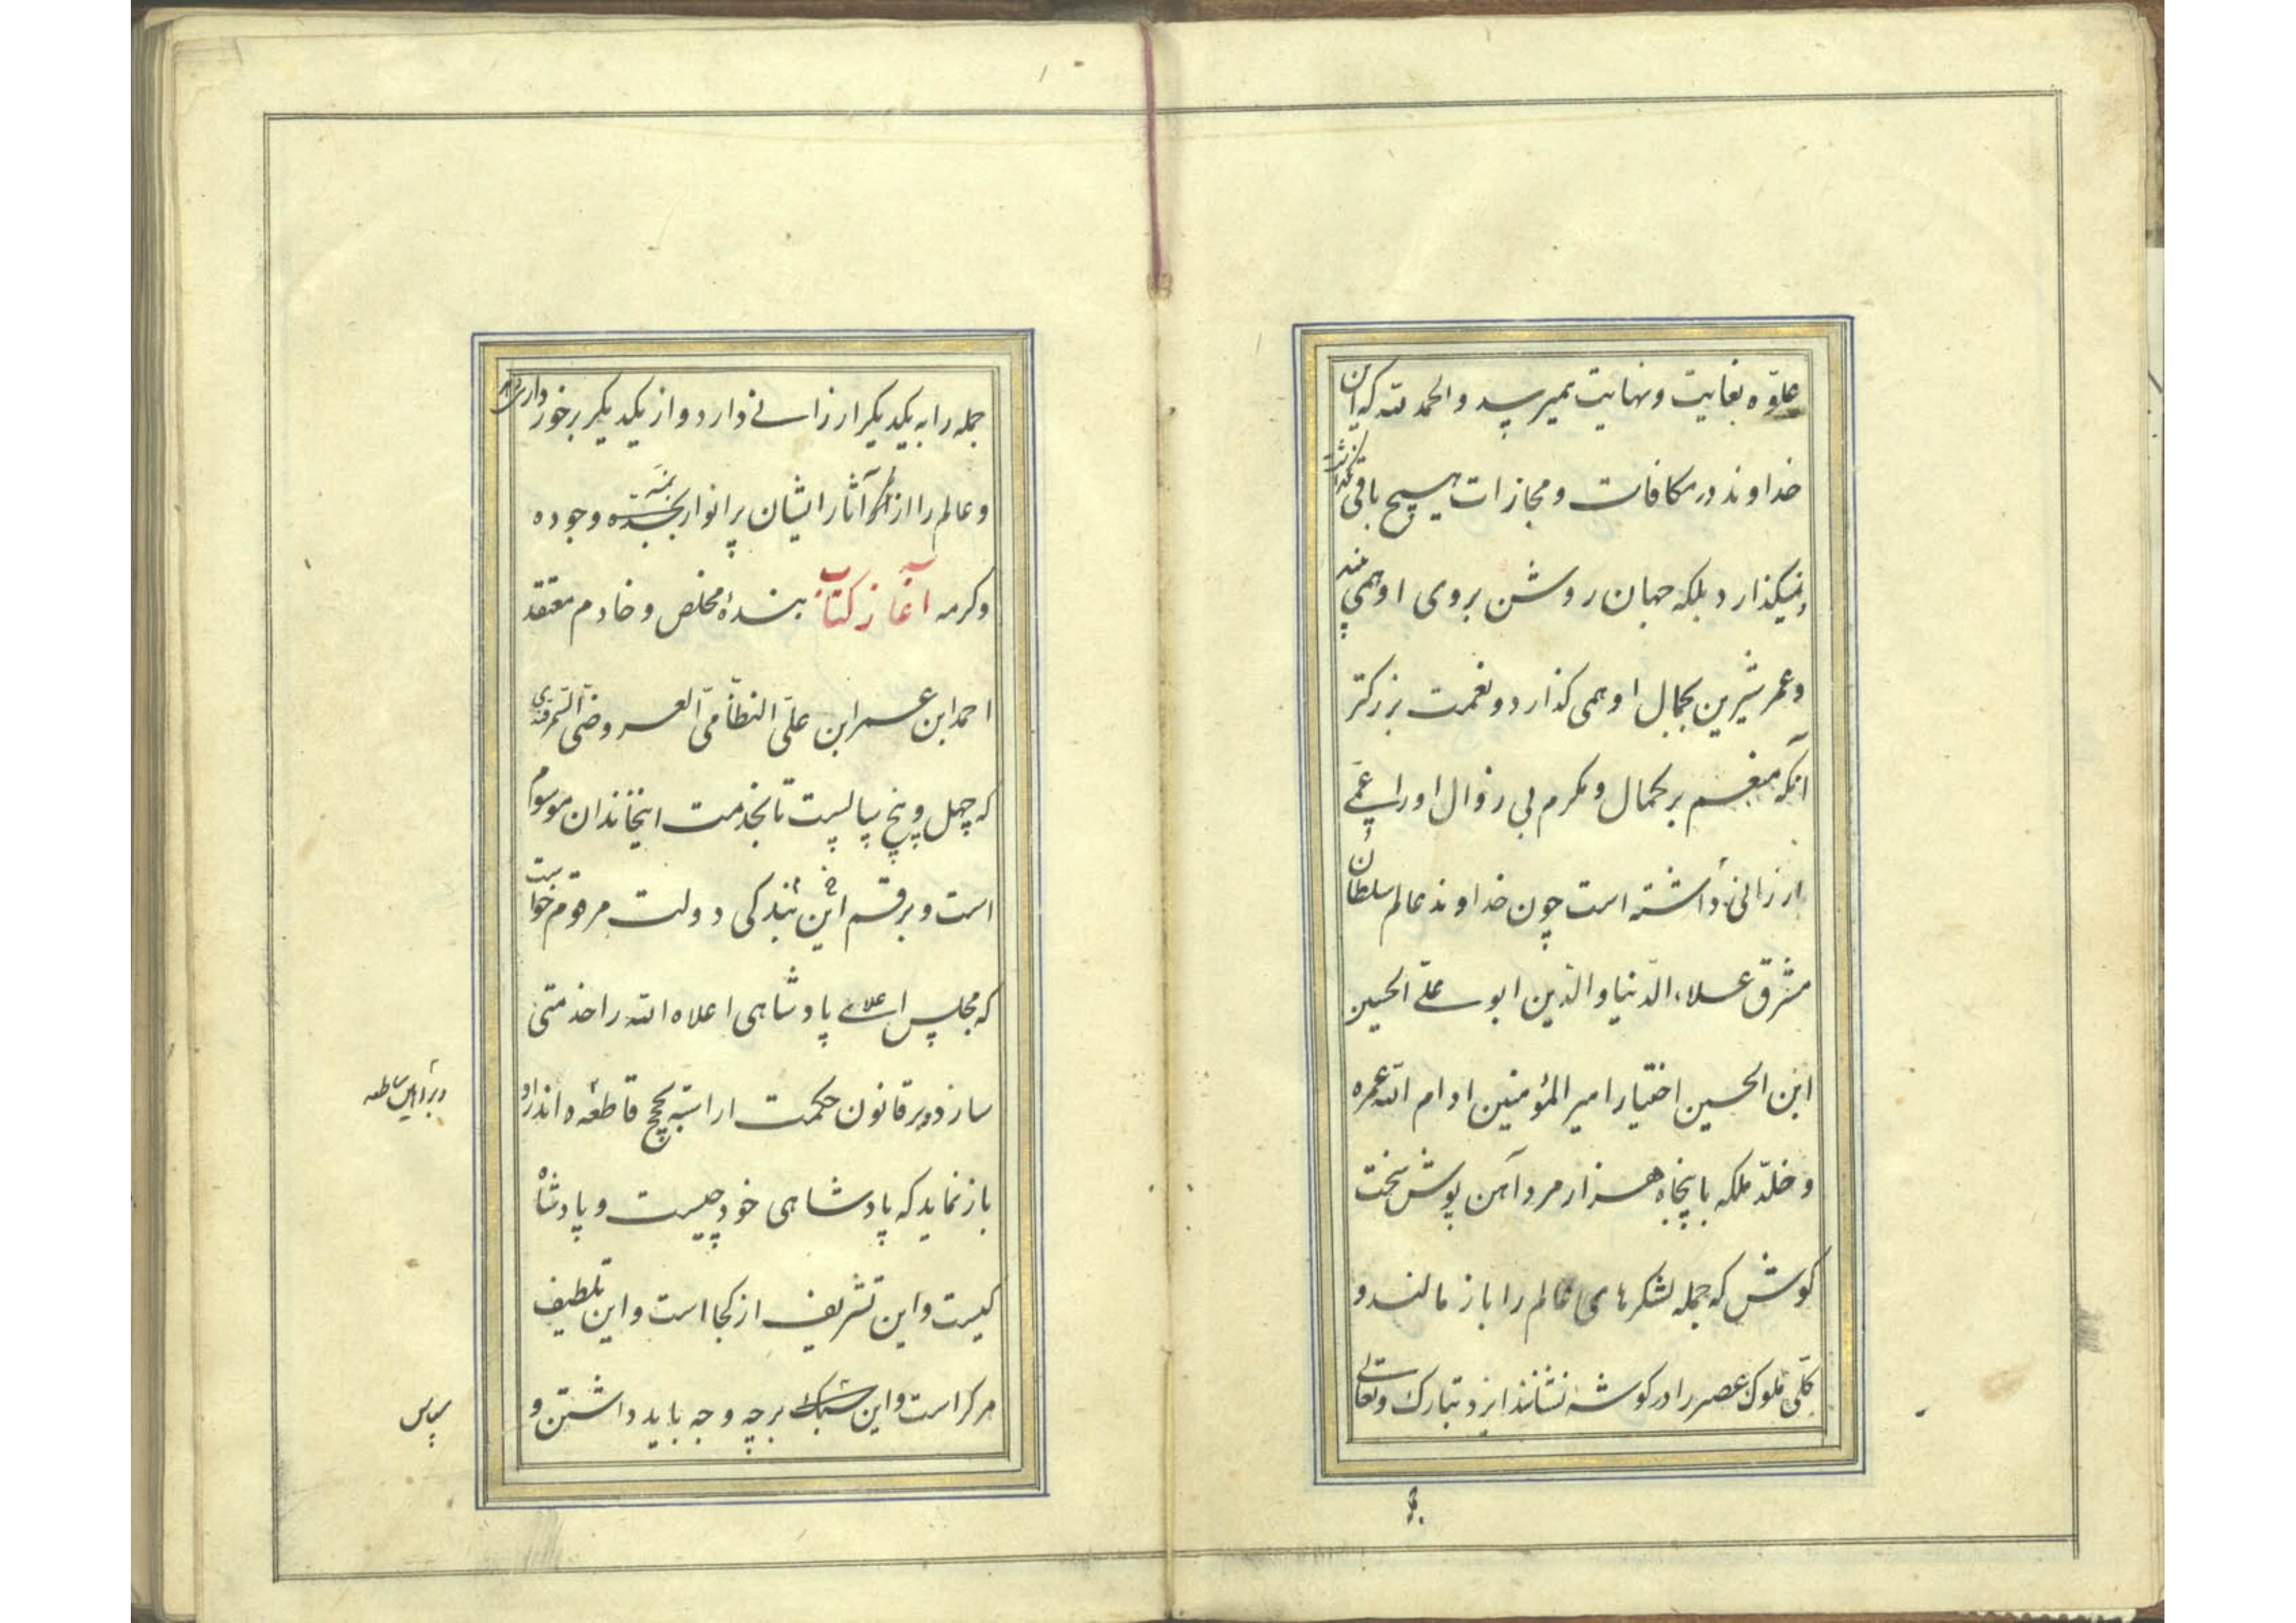 علوّه بغایت و نهایت نمیرسد و الحمد لله که این
خداوند در مکافات و مجازات هیچ باقی نگذاشت
و نمیگذارد بلکه جهان روشن بروی او همی بیند
و عمر شیرین بجمال او همی گذارد و نعمت بزرگتر
آنکه منعم بر کمال و مکرم بی زوال او را عمی
ارزانی داشته است چون خداوند عالم سلطان
مشرق علاء الدّنیا و الدّین ابو علّی الحسین
ابن الحسین اختیار امیر المؤمنین ادام الله عمره
و خلّد ملکه با پنجاه هزار مرد آهن پوش سخت
کوش که جمله لشکرهای عالم را باز مالند و
کلّی ملوک عصر را در گوشه نشانند ایزد تبارک و تعالی
جمله را به یکدیگر ارزانی دارد و از یکدیگر برخورداری
و عالم را از آثار ایشان پر انوار وجوده
و کرمه آغاز کتاب بندهٔ مخلص و خادم معتقد
احمد ابن عمر ابن علّی النظّامی العروضی السّمرقندی
که چهل و پنج سالست تا بخدمت اینخاندان موسوم
است و برقم این بندگی دولت مرقوم خواست
که مجلس اعلای پادشاهی اعلاه الله را خدمتی
سازد بر قانون حکمت اراسته بحجج قاطعه اندر او
و براهین ساطعه
باز نماید که پادشاهی خود چیست و پادشاه
کیست و این تشریف از کجا است و این تلطیف
مر کراست و این بر چه وجه باید داشتن و
سپاس